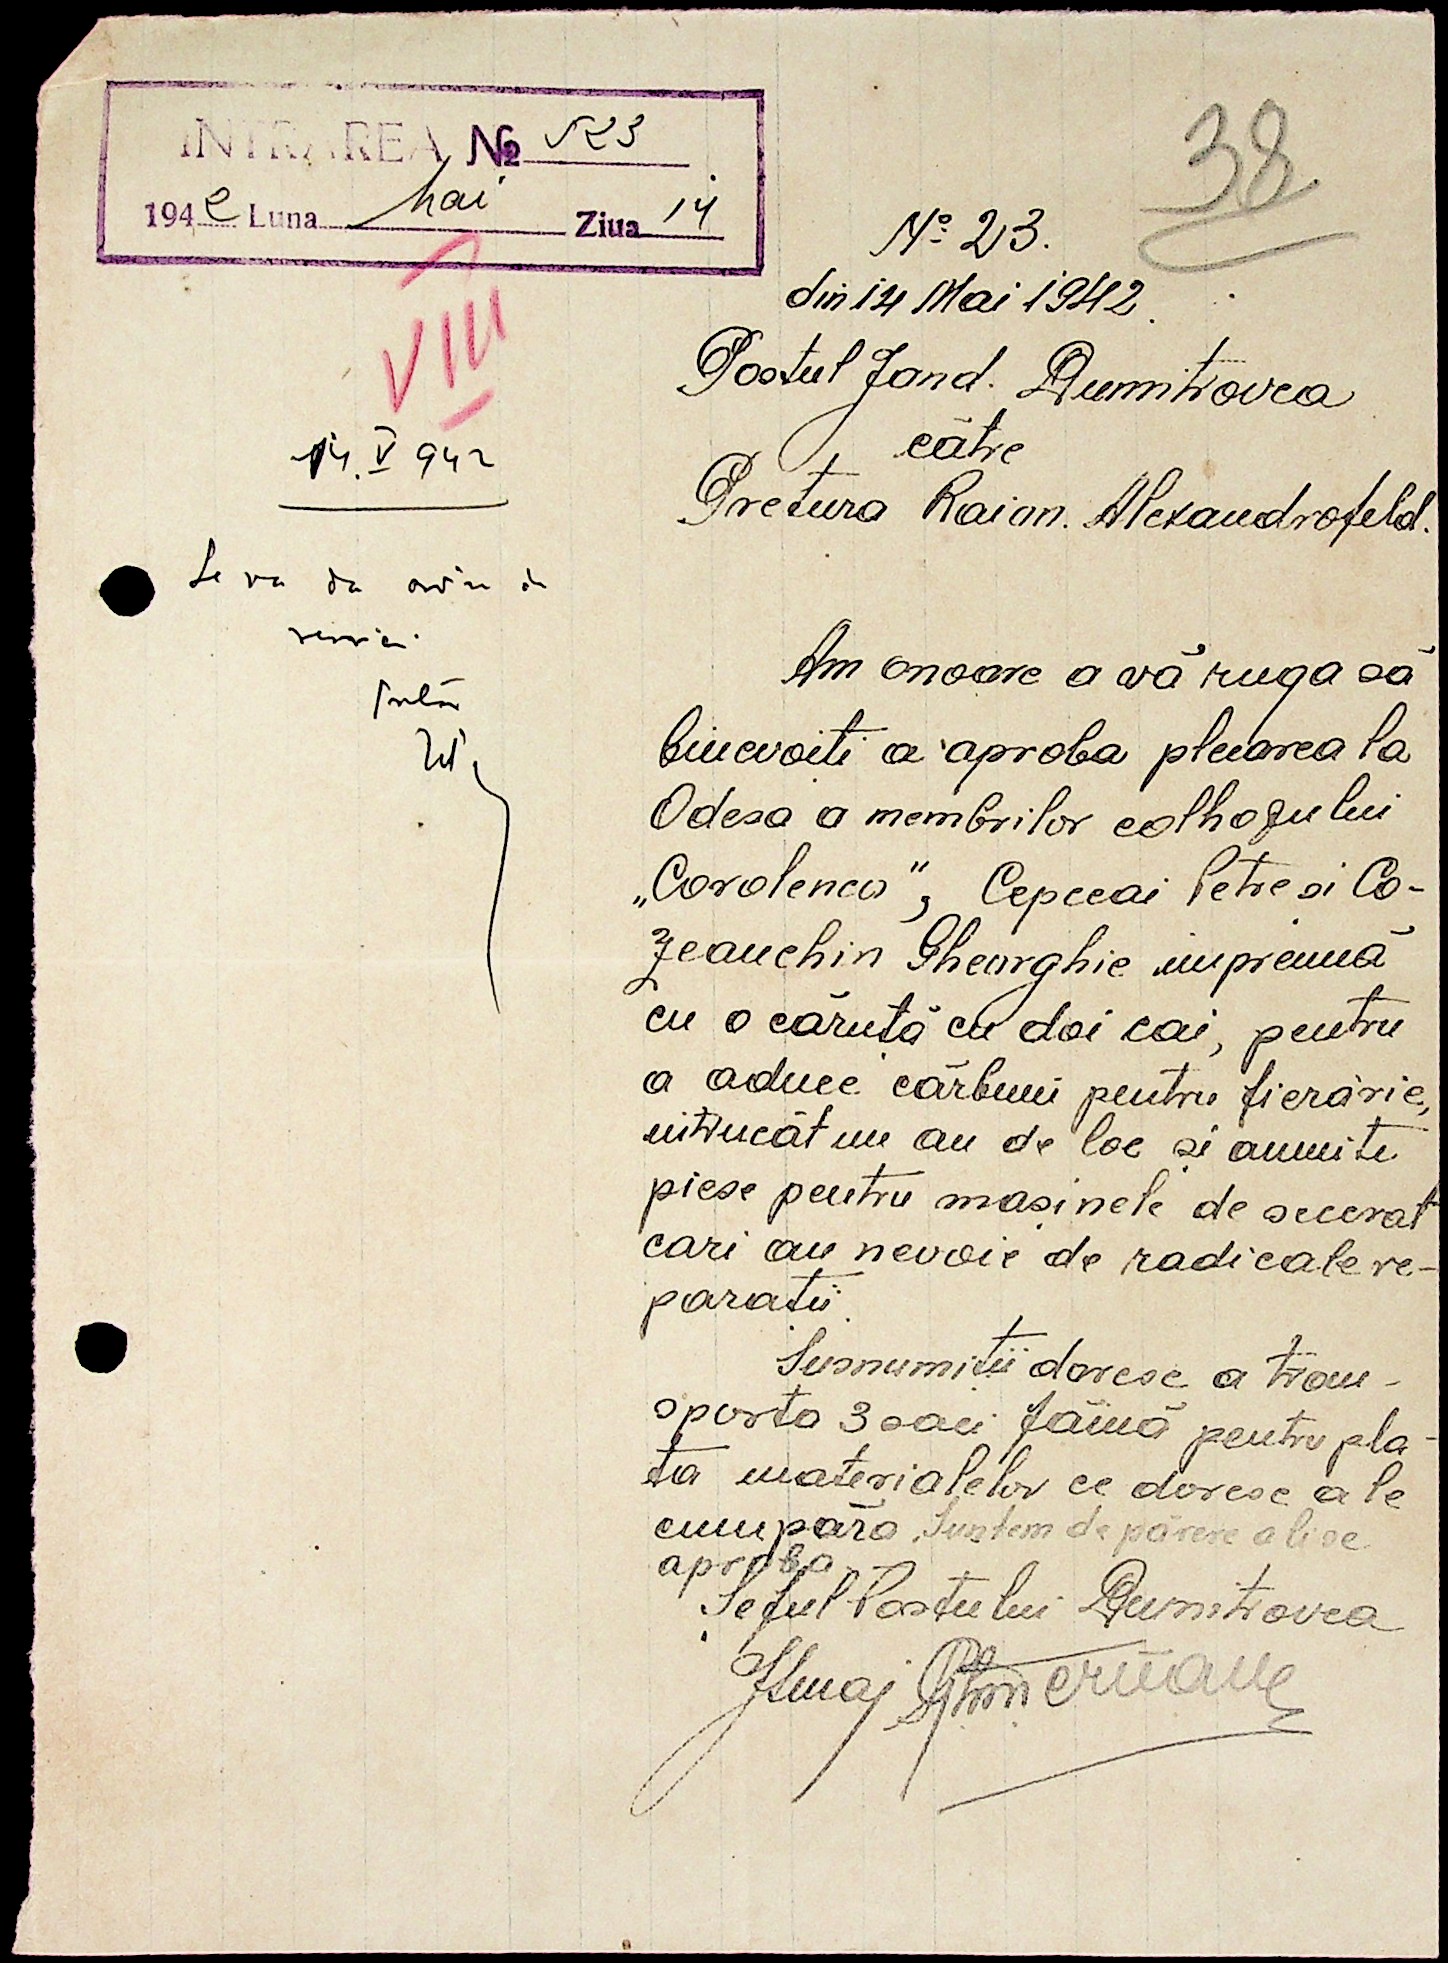 INTRAREA № 523
1942 Luna Mai Ziua 14
38
VIII
No 23.
din 14 Mai 1942.
Postul Jand. Dumitrovca
către
Pretura Raion. Alexandrofeld.
14. V 942
Se va da ordin de
Am onoare a vă ruga să
binevoiti a aproba plecarea la
Odesa a membrilor colhozului
„Corolenco”, Cepceai Petre si Co-
zeanchin Gheorghie impreună
cu o căruță cu doi cai, pentru
a aduce cărbuni pentru fierărie,
intrucât nu au de loc și anumite
piese pentru mașinele de secerat
cari au nevoie de radicale re-
parații.
Susnumiții doresc a tran-
sporta 3 saci făină pentru pla-
ta materialelor ce doresc a le
cumpăra. Suntem de părere a li se
aproba
Șeful Postului Dumitrovca